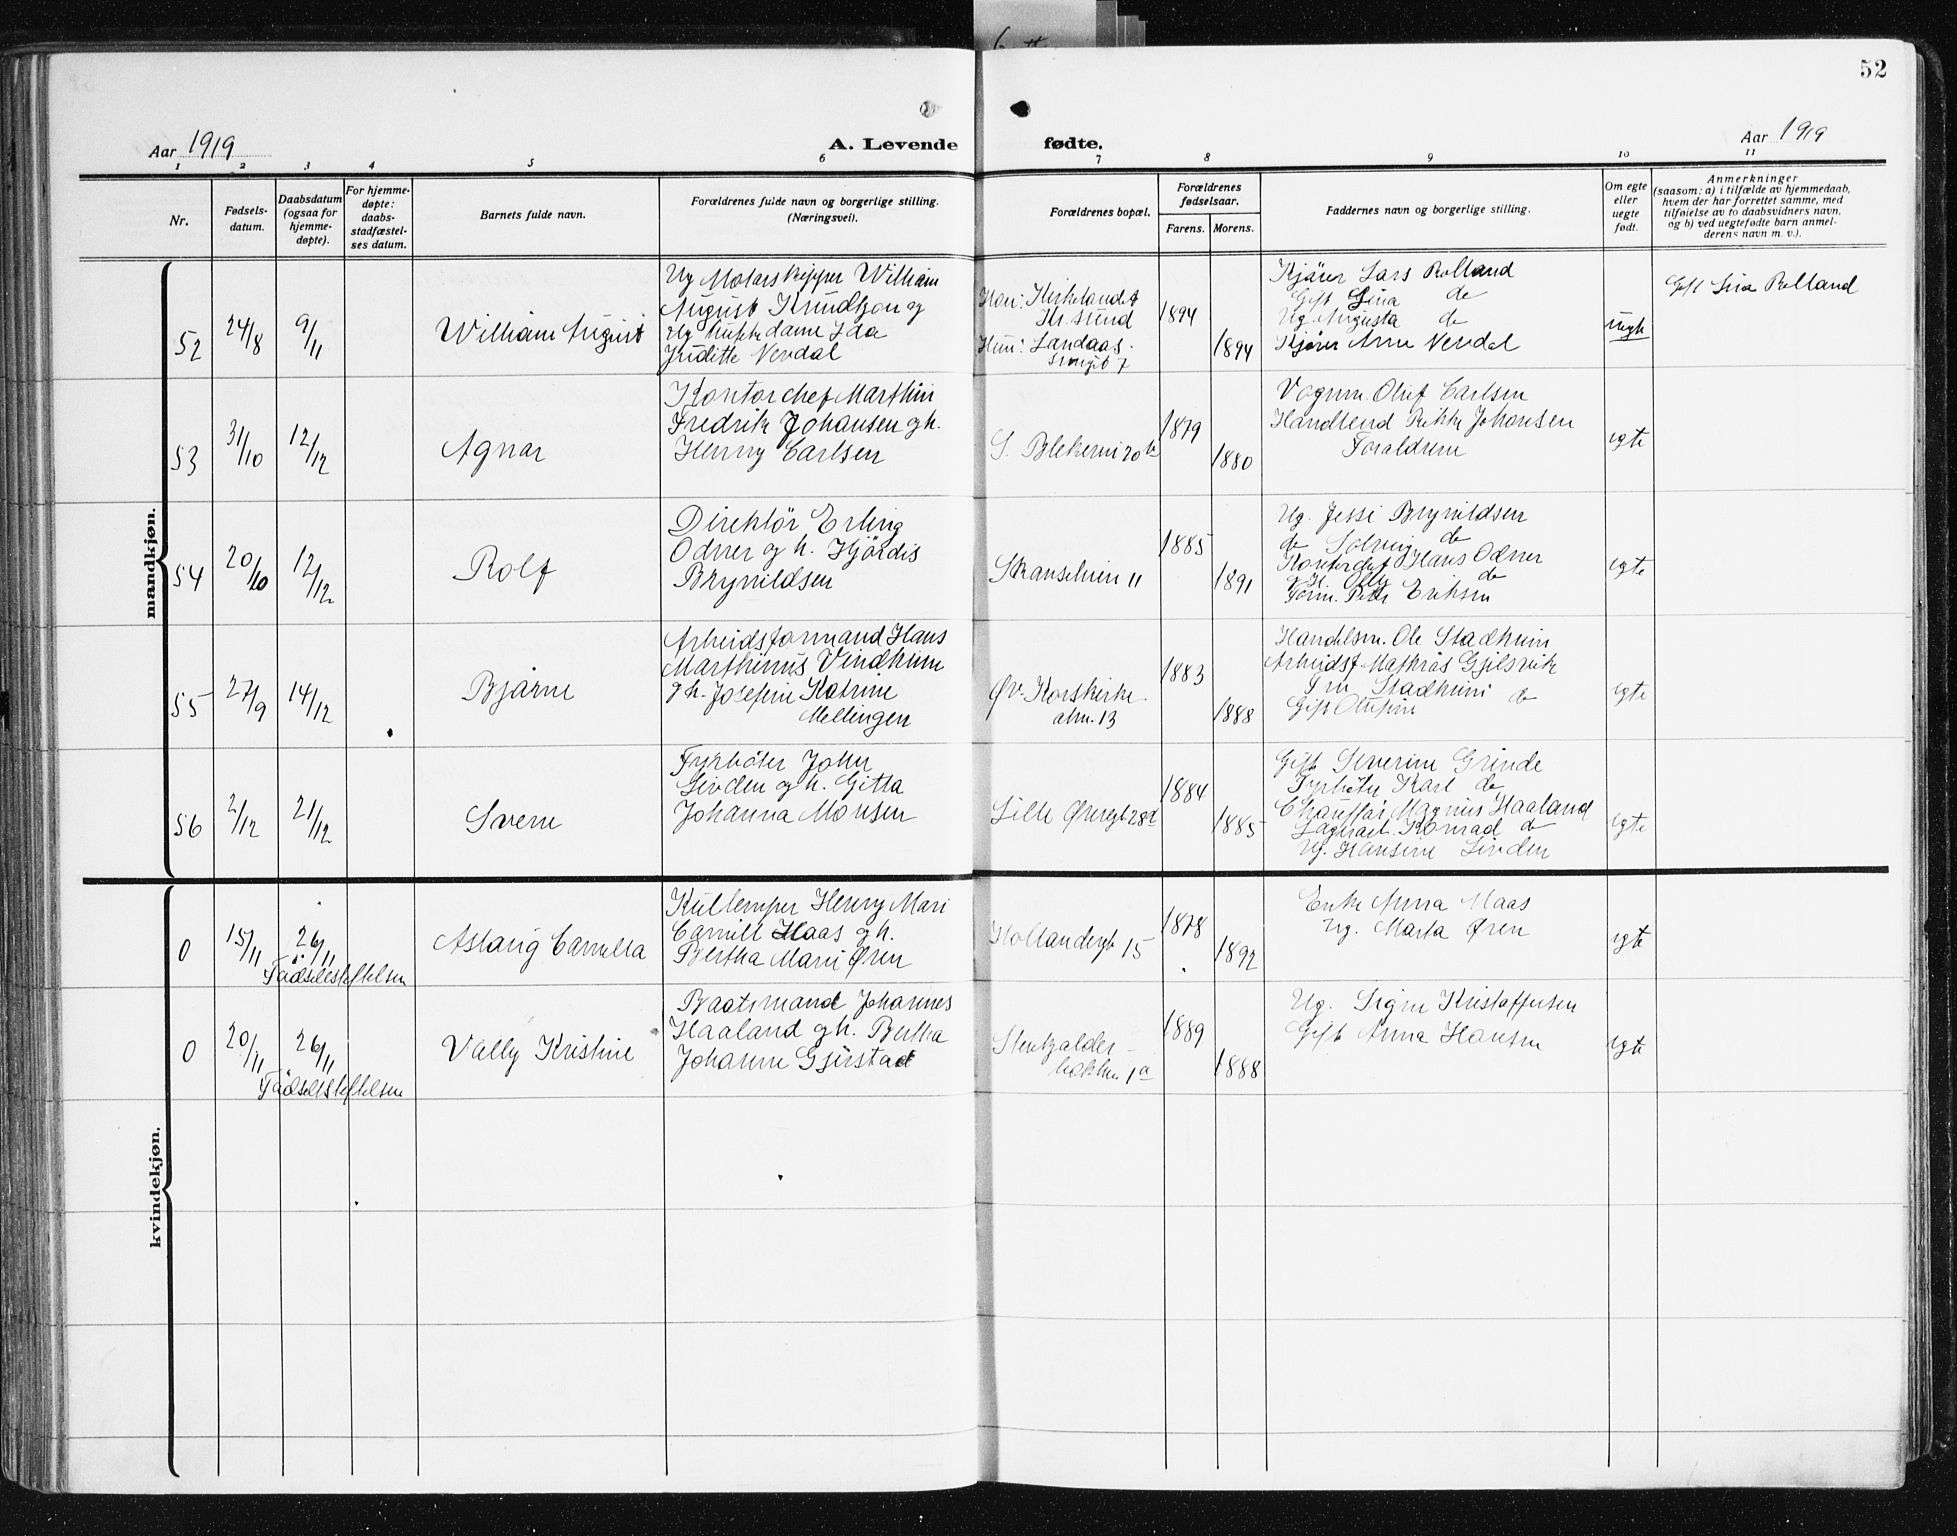 52
Aar 1919
A. Levende fødte.
Aar 1919
1 2 3 4 5 6 7 8 9 10 11
Nr.
Fødsels-
datum.
Daabsdatum
(ogsaa for
hjemme-
døpte).
For hjemme-
døpte:
daabs-
stadfæstel-
ses datum.
Barnets fulde navn.
Forældrenes fulde navn og borgerlige stilling.
(Næringsvei).
Forældrenes bopæl.
Forældrenes
fødselsaar.
Farens. Morens.
Faddernes navn og borgerlige stilling.
Om egte
eller
uegte
født.
Anmerkninger
(saasom: a) i tilfælde av hjemmedaab,
hvem der har forrettet samme, med
tilføielse av to daabsvidners navn,
og b) ved uegtefødte barn anmel-
derens navn m. v.).
mandkjøn.
52
24/8
9/11
William August
Ug Motorskipper William
August Knudtzon og
Ug Ida
Juditte Nerdal
Han: Kirkelandet
Kr. sund
Hun: Landaas
1894
1894
Kjører Lars Rolland
Gift Lina do
Ug. Augusta do
Kjører Arne Nerdal
uegte
Gift Lina Rolland
53
31/10
12/12
Agnar
Kontorchef Marthin
Fredrik Johansen og h.
Henny Carlsen
S. Blekevei 20 b
1879
1880
Vognm. Oluf Carlsen
Handlend Rikke Johansen
Forældrene
egte
54
20/10
12/12
Rolf
Direktör Erling
Odner og h. Hjördis
Brynildsen
Skanselien 11
1885
1891
Ug. Jessi Brynildsen
do Solveig do
Kontorchef Hans Odner
og H. Olly do
Form. Peter Eriksen
egte
55
27/9
14/12
Bjarne
Arbeidsformand Hans
Marthinus Vindheim
og h. Josefine Katrine
Mellingen
Øv. Korskirke
alm. 13
1883
1888
Handelsm. Ole Stadheim
Arbeidsf. Mathias Gjilsvik
Fru Stadheim
Gift Olufine do
egte
56
2/12
21/12
Sverre
Fyrböter John
Linden og h. Gitta
Johanna Monsen
Lille Øvregt 28d
1884
1885
Gift Severine Grinde
Fyrböter Karl do
Chauffør Magnus Haaland
Lagerarb. Konrad do
Ug. Hansine Linden
egte
kvindekjøn.
0
15/11
26/11
Födselsstiftelsen
Aslaug Camilla
Kullemper Henry Mari
Camill Haas og h.
Bertha Marie Øren
Hollendergt 15
1878
1892
Enke Anna Maas
Ug. Marta Øren
egte
0
20/11
26/11
Födselsstiftelsen
Vally Kristine
Baatsmand Johannes
Haaland og h. Bertha
Johanne Gjerstad
Stentzalder-
bakken 1a
1889
1888
Ug. Signe Kristoffersen
Gift Anna Hansen
egte